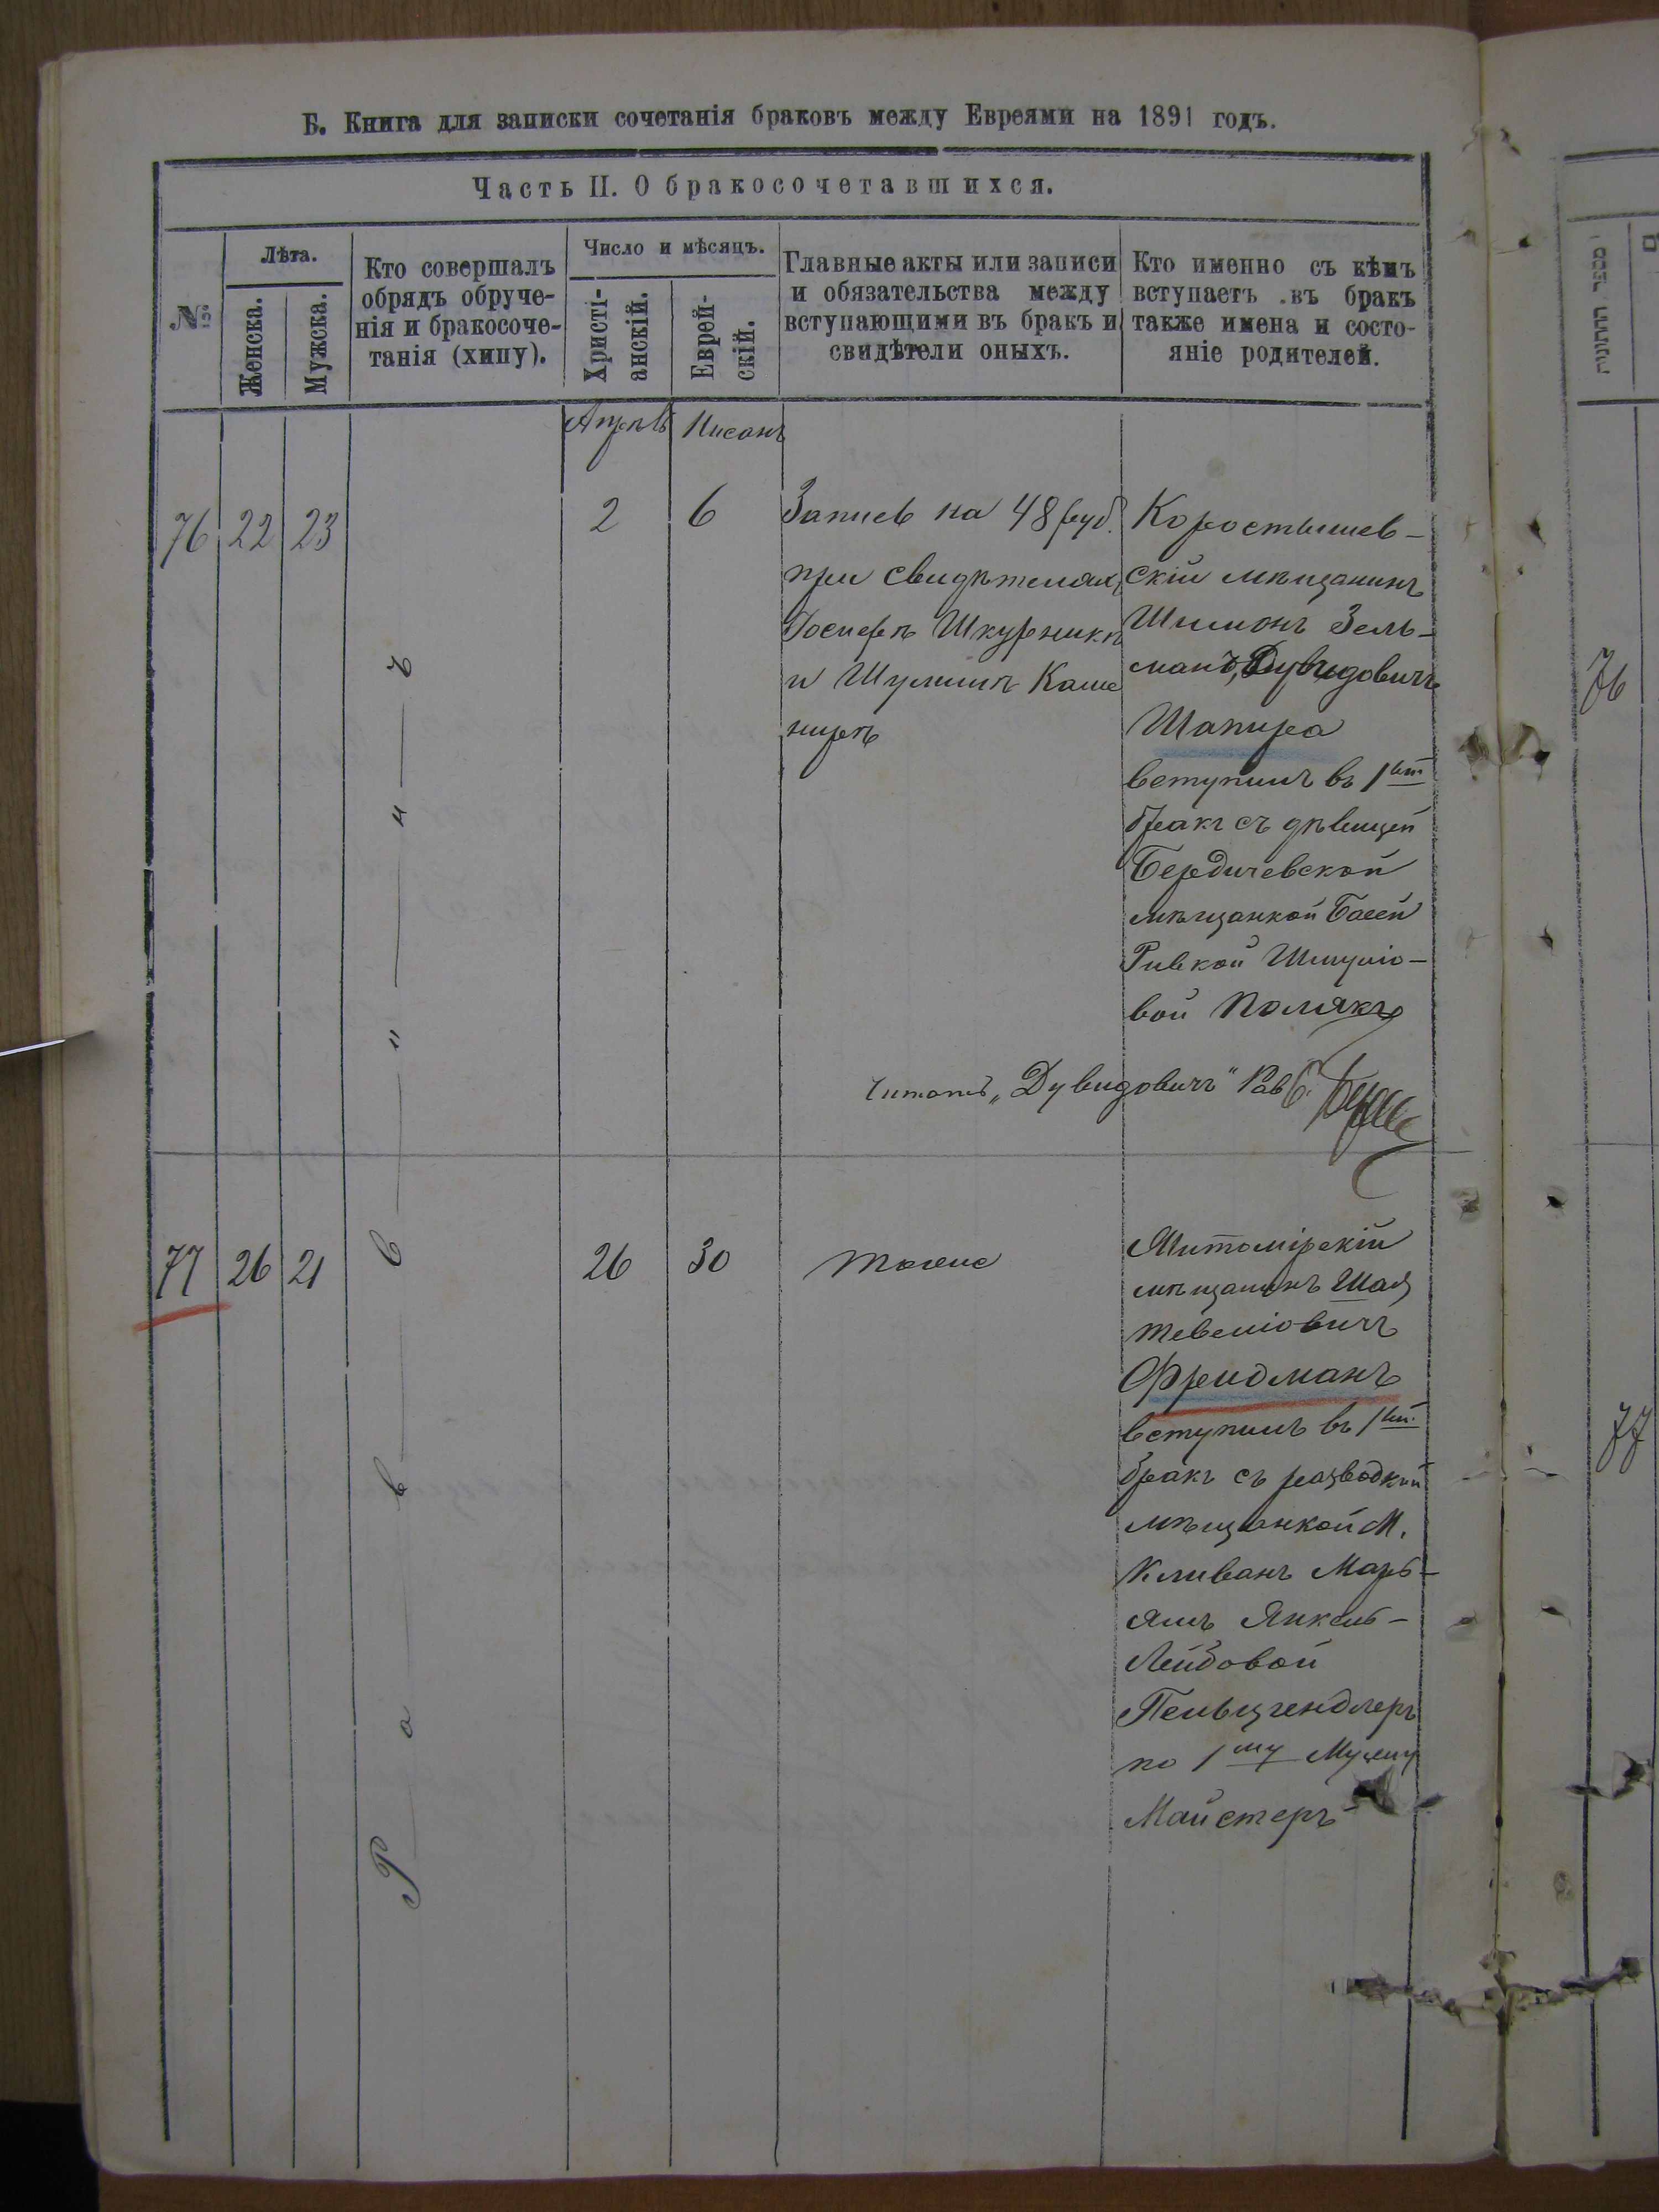 Б. Книга для записки сочетанія браковъ между Евреями на 1891 годъ.
Часть II. О бракосочетавшихся.
№
Лѣта.
Женска.
Мужска.
Кто совершалъ
обрядъ обруче-
нія и бракосоче-
танія (хипу).
Число и мѣсяцъ.
Христі-
анскій.
Еврей-
скій.
Главные акты или записи
и обязательства между
вступающими въ бракъ и
свидѣтели оныхъ.
Кто именно съ кѣмъ
вступаетъ въ бракъ
также имена и состо-
яніе родителей.
Апрель Нисанъ
76 22 23
2 6
Запись на 48 руб.
при свидѣтеляхъ
Іосифѣ Шкурникѣ
и Шулимѣ Каше
нирѣ
Коростышев-
скій мѣщанинъ
Шимонъ Зель-
манъ Дувидовичъ
Шапира
вступилъ въ 1ый
бракъ съ дѣвицей
Бердичевской
мѣщанкой Басей
Ривкой Шмуліо-
вой Полякъ
Читать „Дувидовичъ" Рав.
77 26 21
26 30
тоже
Житомірскій
мѣщанинъ Шая
Тевеліовичъ
Фридманъ
вступилъ въ 1ый
бракъ съ разводкой
мѣщанкой М.
Кливань Марь-
ямъ Янкель-
Лейбовой
Пельцгендлеръ
по 1му Мужу
Майстеръ
Р а в в и н ъ
מספר החתונות
76
77